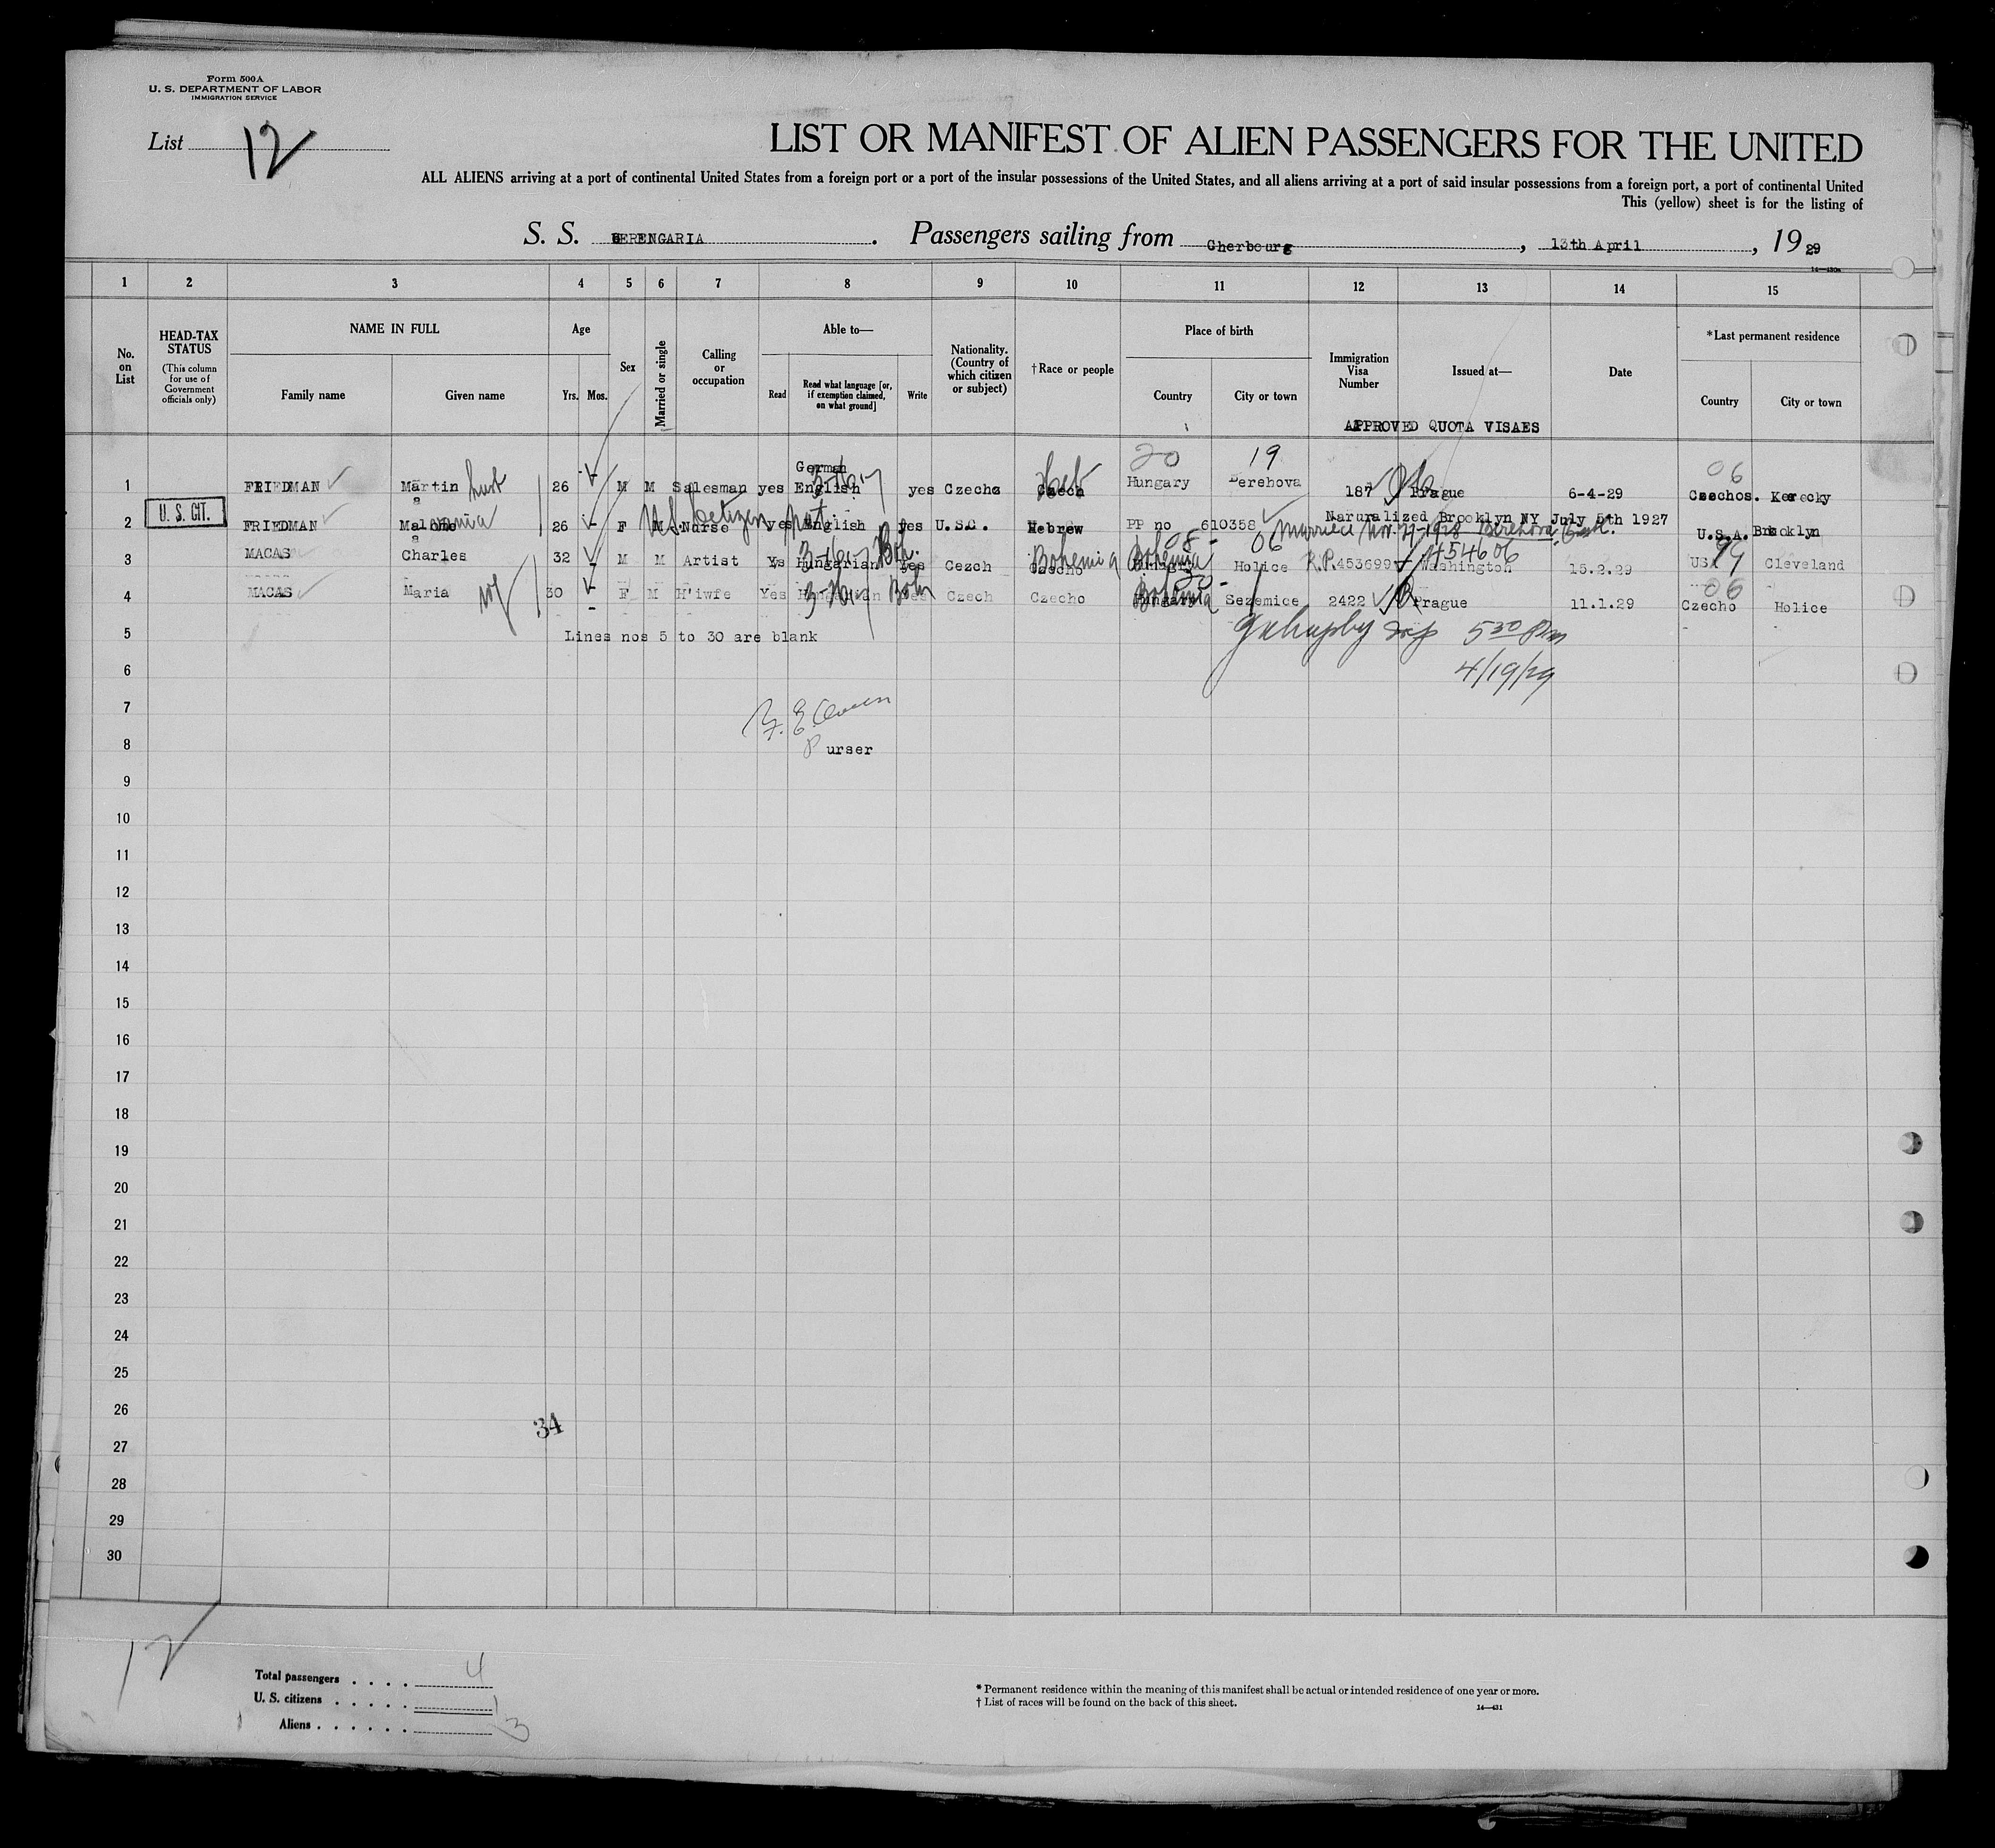 Form 500A
U. S. DEPARTMENT OF LABOR
IMMIGRATION SERVICE
List 12
LIST OR MANIFEST OF ALIEN PASSENGERS FOR THE UNITED
ALL ALIENS arriving at a port of continental United States from a foreign port or a port of the insular possessions of the United States, and all aliens arriving at a port of said insular possessions from a foreign port, a port of continental United
This (yellow) sheet is for the listing of
S. S. BERENGARIA . Passengers sailing from Cherbourg , 13th April , 19 29
14—430a
1 2 3 4 5 6 7 8 9 10 11 12 13 14 15
No. on List
HEAD-TAX STATUS
(This column for use of Government officials only)
NAME IN FULL
Family name Given name
Age
Yrs. Mos.
Sex
Married or single
Calling or occupation
Able to—
Read
Read what language [or, if exemption claimed, on what ground]
Write
Nationality. (Country of which citizen or subject)
†Race or people
Place of birth
Country City or town
Immigration Visa Number
Issued at—
Date
*Last permanent residence
Country City or town
APPROVED QUOTA VISAES
20 19 06
German
1 FRIEDMAN Martin 26 M M Salesman yes English yes Czecho Czech Heb Hungary Berehova 187 Prague 6-4-29 Czechos. Kerecky
U. S. CIT.
2 FRIEDMAN 26 F M Nurse yes English yes U.S.C. Hebrew PP no 610358 Naruralized Brooklyn NY July 5th 1927 U.S.A. Brooklyn
US citizen
Married Nov. 27-1928 Berehova
08- 06 454606 99
3 MACAS Charles 32 M M Artist Yes Hungarian Boh. Yes Czech Czecho Bohemia Bohemia Holice R.P. 453699 Washington 15.2.29 USA Cleveland
30- 06
4 MACAS Maria wf 30 F M H'iwfe Yes Hungarian Boh Yes Czech Czecho Hungary Bohemia Sezemice 2422 Prague 11.1.29 Czecho Holice
5 Lines nos 5 to 30 are blank
5 30 Pm
6 4/19/29
7
8 Purser
9
10
11
12
13
14
15
16
17
18
19
20
21
22
23
24
25
26
34
27
28
29
30
12
Total passengers . . . . 4
U. S. citizens . . . . . 1
Aliens . . . . . . 3
* Permanent residence within the meaning of this manifest shall be actual or intended residence of one year or more.
† List of races will be found on the back of this sheet.
14—431